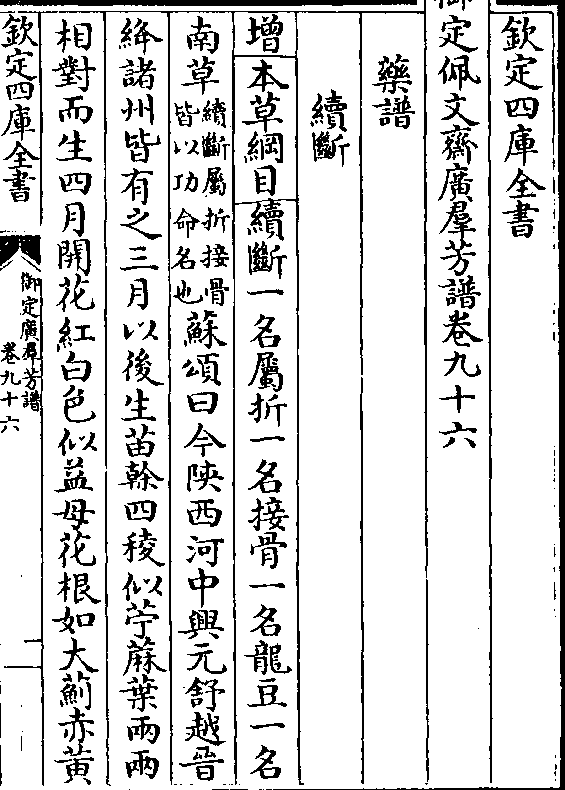 欽定四庫全書
御定佩文齋廣羣芳譜卷九十六
藥譜
續斷
增本草綱目續斷一名屬折一名接骨一名龍豆一名
南草續斷屬折接骨皆以功命名也蘇頌曰今陝西河中興元舒越晉
絳諸州皆有之三月以後生苗幹四稜似苧蔴葉兩兩
相對而生四月開花紅白色似益母花根如大薊赤黃
欽定四庫全書
御定廣羣芳譜
卷九十六
一